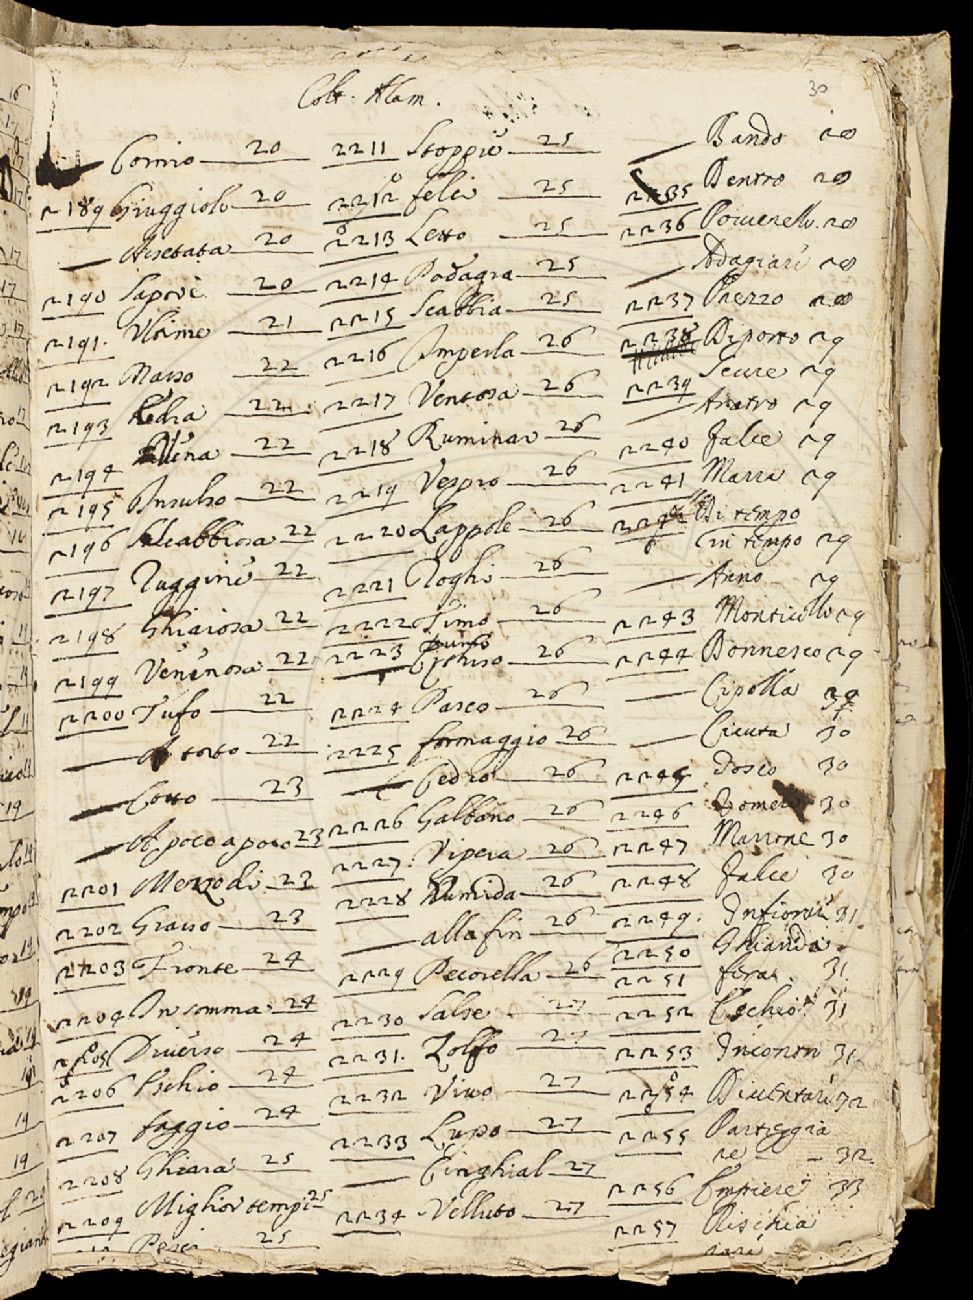 30
Colt. Alam.
Cornio 20
2189 Giuggiolo 20
Assetata 20
2190 Sapori 20
2191. Ultime 21
2192 Masso 22
2193 22
2194 22
2195 Insulso 22
2196 Scabbiosa 22
2197 Ruggine 22
2198 Ghiaiosa 22
2199 Venenosa 22
2200 Tufo 22
Attorto 22
Cotto 23
A poco a poco 23
2201 Mezzodi 23
2202 Grasso 23
2203 Fronte 24
2204 In somma 24
2205 Diverso 24
2206 Eschio 24
2207 faggio 24
2208 Ghiara 25
2209 Miglior tempi 25
Pesci 25
2211 Stoppie 25
2212 felci 25
2213 Letto 25
2214 Podagra 25
2215 Scabbia 25
2216 26
2217 Ventosa 26
2218 Ruminar 26
2219 Vespro 26
2220 Lappole 26
2221 Roghi 26
2222 Timo 26
2223 26
2224 Pasco 26
2225 formaggio 26
Cedro 26
2226 Galbano 26
2227. Vipera 26
2228 Humida 26
alla fin 26
2229 Pecorella 26
2230 Salse 27
2231. Zolfo 27
2232 Vivo 27
2233 Lupo 27
Cinghial 27
2234 Velluto 27
Bando 28
2235 Dentro 28
2236 Poverello 28
Adagiari 28
2237 Prezzo 28
2238 Diporto 29
2239 Scure 29
Aratro 29
2240 Falce 29
2241 Marra 29
2242 Di tempo
in tempo 29
Anno 29
2243 Monticello 29
2244 Donnesco 29
Cipolla 30
Cicuta 30
2245 Tosco 30
2246 30
2247 Marrone 30
2248 Falce 30
2249. 31.
2250 Ghianda
2251 31
2252 Eschio 31
2253 31
2254 Diventari 32
2255 Parteggia
re 32
2256 Empiere 33
2257 Rischia